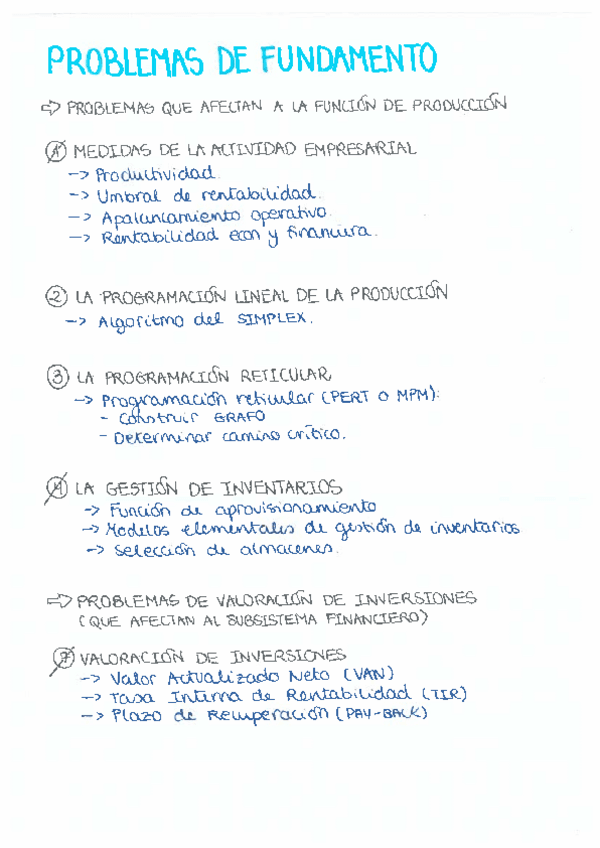 PROBLEMAS DE FUNDAMENTO
⇒ PROBLEMAS QUE AFECTAN A LA FUNCIÓN DE PRODUCCIÓN
① MEDIDAS DE LA ACTIVIDAD EMPRESARIAL
-> Productividad.
-> Umbral de rentabilidad.
-> Apalancamiento operativo.
-> Rentabilidad econ y financiera.
② LA PROGRAMACIÓN LINEAL DE LA PRODUCCIÓN
-> Algoritmo del SIMPLEX.
③ LA PROGRAMACIÓN RETICULAR
-> Programación reticular (PERT O MPM):
- Construir GRAFO
- Determinar camino crítico.
④ LA GESTIÓN DE INVENTARIOS
-> Función de aprovisionamiento
-> Modelos elementales de gestión de inventarios
-> Selección de almacenes.
⇒ PROBLEMAS DE VALORACIÓN DE INVERSIONES
(QUE AFECTAN AL SUBSISTEMA FINANCIERO)
⑦ VALORACIÓN DE INVERSIONES
-> Valor Actualizado Neto (VAN)
-> Tasa Interna de Rentabilidad (TIR)
-> Plazo de Recuperación (PAY-BACK)